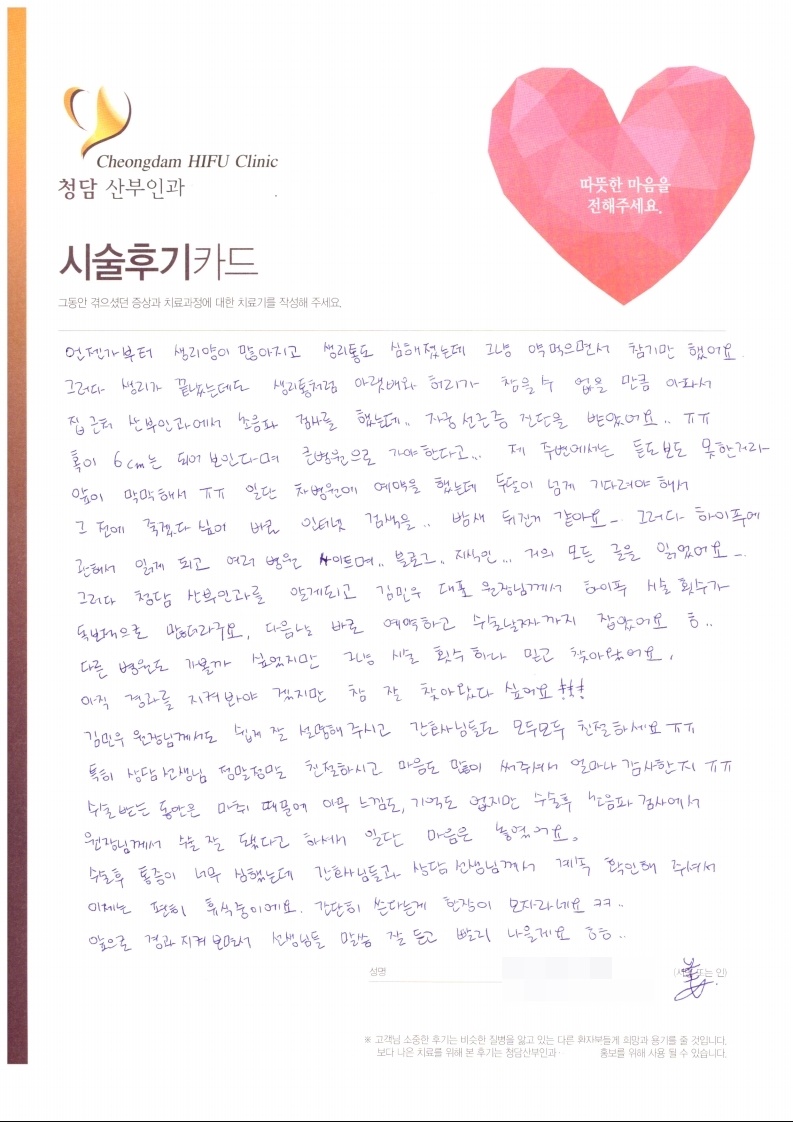 Cheongdam HIFU Clinic
청담 산부인과
따뜻한 마음을
전해주세요.
시술후기카드
그동안 겪으셨던 증상과 치료과정에 대한 치료기를 작성해 주세요.
언젠가부터 생리양이 많아지고 생리통도 심해졌는데 그냥 약먹으면서 참기만 했어요.
그러다 생리가 끝났는데도 생리통처럼 아랫배와 허리가 참을수 없을 만큼 아파서
집 근처 산부인과에서 초음파 검사를 했는데.. 자궁선근증 진단을 받았어요.. ㅠㅠ
혹이 6cm는 되어 보인다며 큰병원으로 가야한다고... 제 주변에서는 듣도보도 못한거라
앞이 막막해서 ㅠㅠ 일단 차병원에 예약을 했는데 두달이 넘게 기다려야 해서
그 전에 죽겠다 싶어 바로 인터넷 검색을.. 밤새 뒤진거 같아요- 그러다 하이푸에
관해서 읽게 되고 여러 병원 사이트며.. 블로그.. 지식인... 거의 모든 글을 읽었어요-.
그러다 청담 산부인과를 알게되고 김민우 대표 원장님께서 하이푸 시술 횟수가
독보적으로 많더라구요, 다음날 바로 예약하고 수술날짜까지 잡았어요 ㅎ..
다른 병원도 가볼까 싶었지만 그냥 시술 횟수 하나 믿고 찾아왔어요,
아직 경과를 지켜봐야 겠지만 참 잘 찾아왔다 싶어요!!!
김민우 원장님께서도 쉽게 잘 설명해 주시고 간호사님들도 모두모두 친절하세요 ㅠㅠ
특히 상담선생님 정말정말 친절하시고 마음도 많이 써주셔서 얼마나 감사한지 ㅠㅠ
수술받는 동안은 마취 때문에 아무 느낌도, 기억도 없지만 수술후 초음파 검사에서
원장님께서 수술 잘 됐다고 하셔서 일단 마음은 놓였어요.
수술후 통증이 너무 심했는데 간호사님들과 상담선생님께서 계속 확인해 주셔서
이제는 편히 휴식중이에요. 간단히 쓴다는게 한장이 모자라네요 ㅋㅋ..
앞으로 경과 지켜보면서 선생님들 말씀 잘 듣고 빨리 나을게요 ㅎㅎ..
성명 (서명 또는 인)
※ 고객님 소중한 후기는 비슷한 질병을 앓고 있는 다른 환자분들게 희망과 용기를 줄 것입니다.
보다 나은 치료를 위해 본 후기는 청담산부인과· 홍보를 위해 사용 될 수 있습니다.